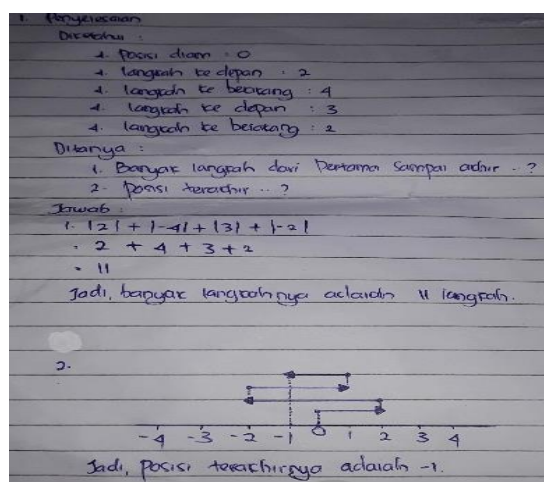 1. Penyelesaian
Diketahui :
1. Posisi diam : 0
1. langkah ke depan : 2
1. langkah ke belakang : 4
1. langkah ke depan : 3
1. langkah ke belakang : 2
Ditanya :
1. Banyak langkah dari Pertama sampai akhir .. ?
2. Posisi terachir .. ?
Jawab :
1. |2| + |-4| + |3| + |-2|
= 2 + 4 + 3 + 2
= 11
Jadi, banyak langkahnya adalah 11 langkah.
2.
-4 -3 -2 -1 0 1 2 3 4
Jadi, Posisi terachirnya adalah -1.